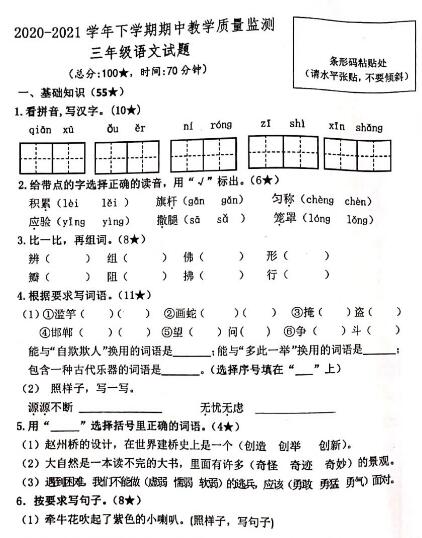 2020-2021学年下学期期中教学质量监测
三年级语文试题
(总分:100★，时间:70分钟)
条形码粘贴处
(请水平张贴，不要倾斜)
一、基础知识（55★）
1.看拼音,写汉字。(10★)
qiān xū ǒu ěr ní róng zī shì xīn shǎng
2.给带点的字选择正确的读音，用“√”标出。(6★)
积累（lèi lěi ） 旗杆（gān gǎn） 匀称（chèng chèn）
应验（yīng yìng） 撒腿（sā sǎ ） 笼罩（lóng lǒng）
3.比一比，再组词。(8★)
辨（ ） 组（ ） 佛（ ） 形（ ）
瓣（ ） 阻（ ） 拂（ ） 行（ ）
4.根据要求写词语。(11★)
(1)①滥竽（ ）（ ） ②画蛇（ ）（ ） ③掩（ ）盗（ ）
④邯郸（ ）（ ） ⑤望（ ）问（ ） ⑥争（ ）斗（ ）
能与“自欺欺人”换用的词语是______;能与“多此一举”换用的词语是______;
包含一种古代乐器的词语是______。（选择序号填在“___”上）
(2) 照样子，写一写。
源源不断 ______________ 无忧无虑 ______________
5.用“_____”选择括号里正确的词语。(4★)
(1) 赵州桥的设计，在世界建桥史上是一个（创造 创举 创新）。
(2) 大自然是一本读不完的大书，里面有许多（奇怪 奇迹 奇妙）的景观。
(3) 遇到困难，我们不能做（虚弱 懦弱 软弱）的逃兵，应该（勇敢 勇猛 勇气）面对。
6. 按要求写句子。(8★)
(1) 牵牛花吹起了紫色的小喇叭。(照样子，写句子)